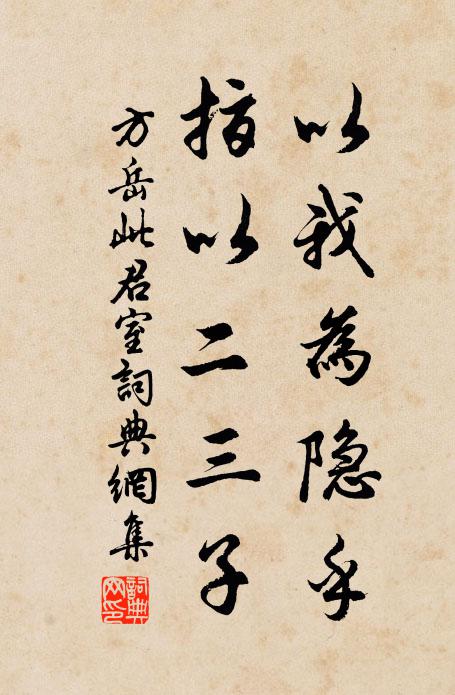 以我為隐乎
指以二三子
方岳此君室詞典網集
詞典网印